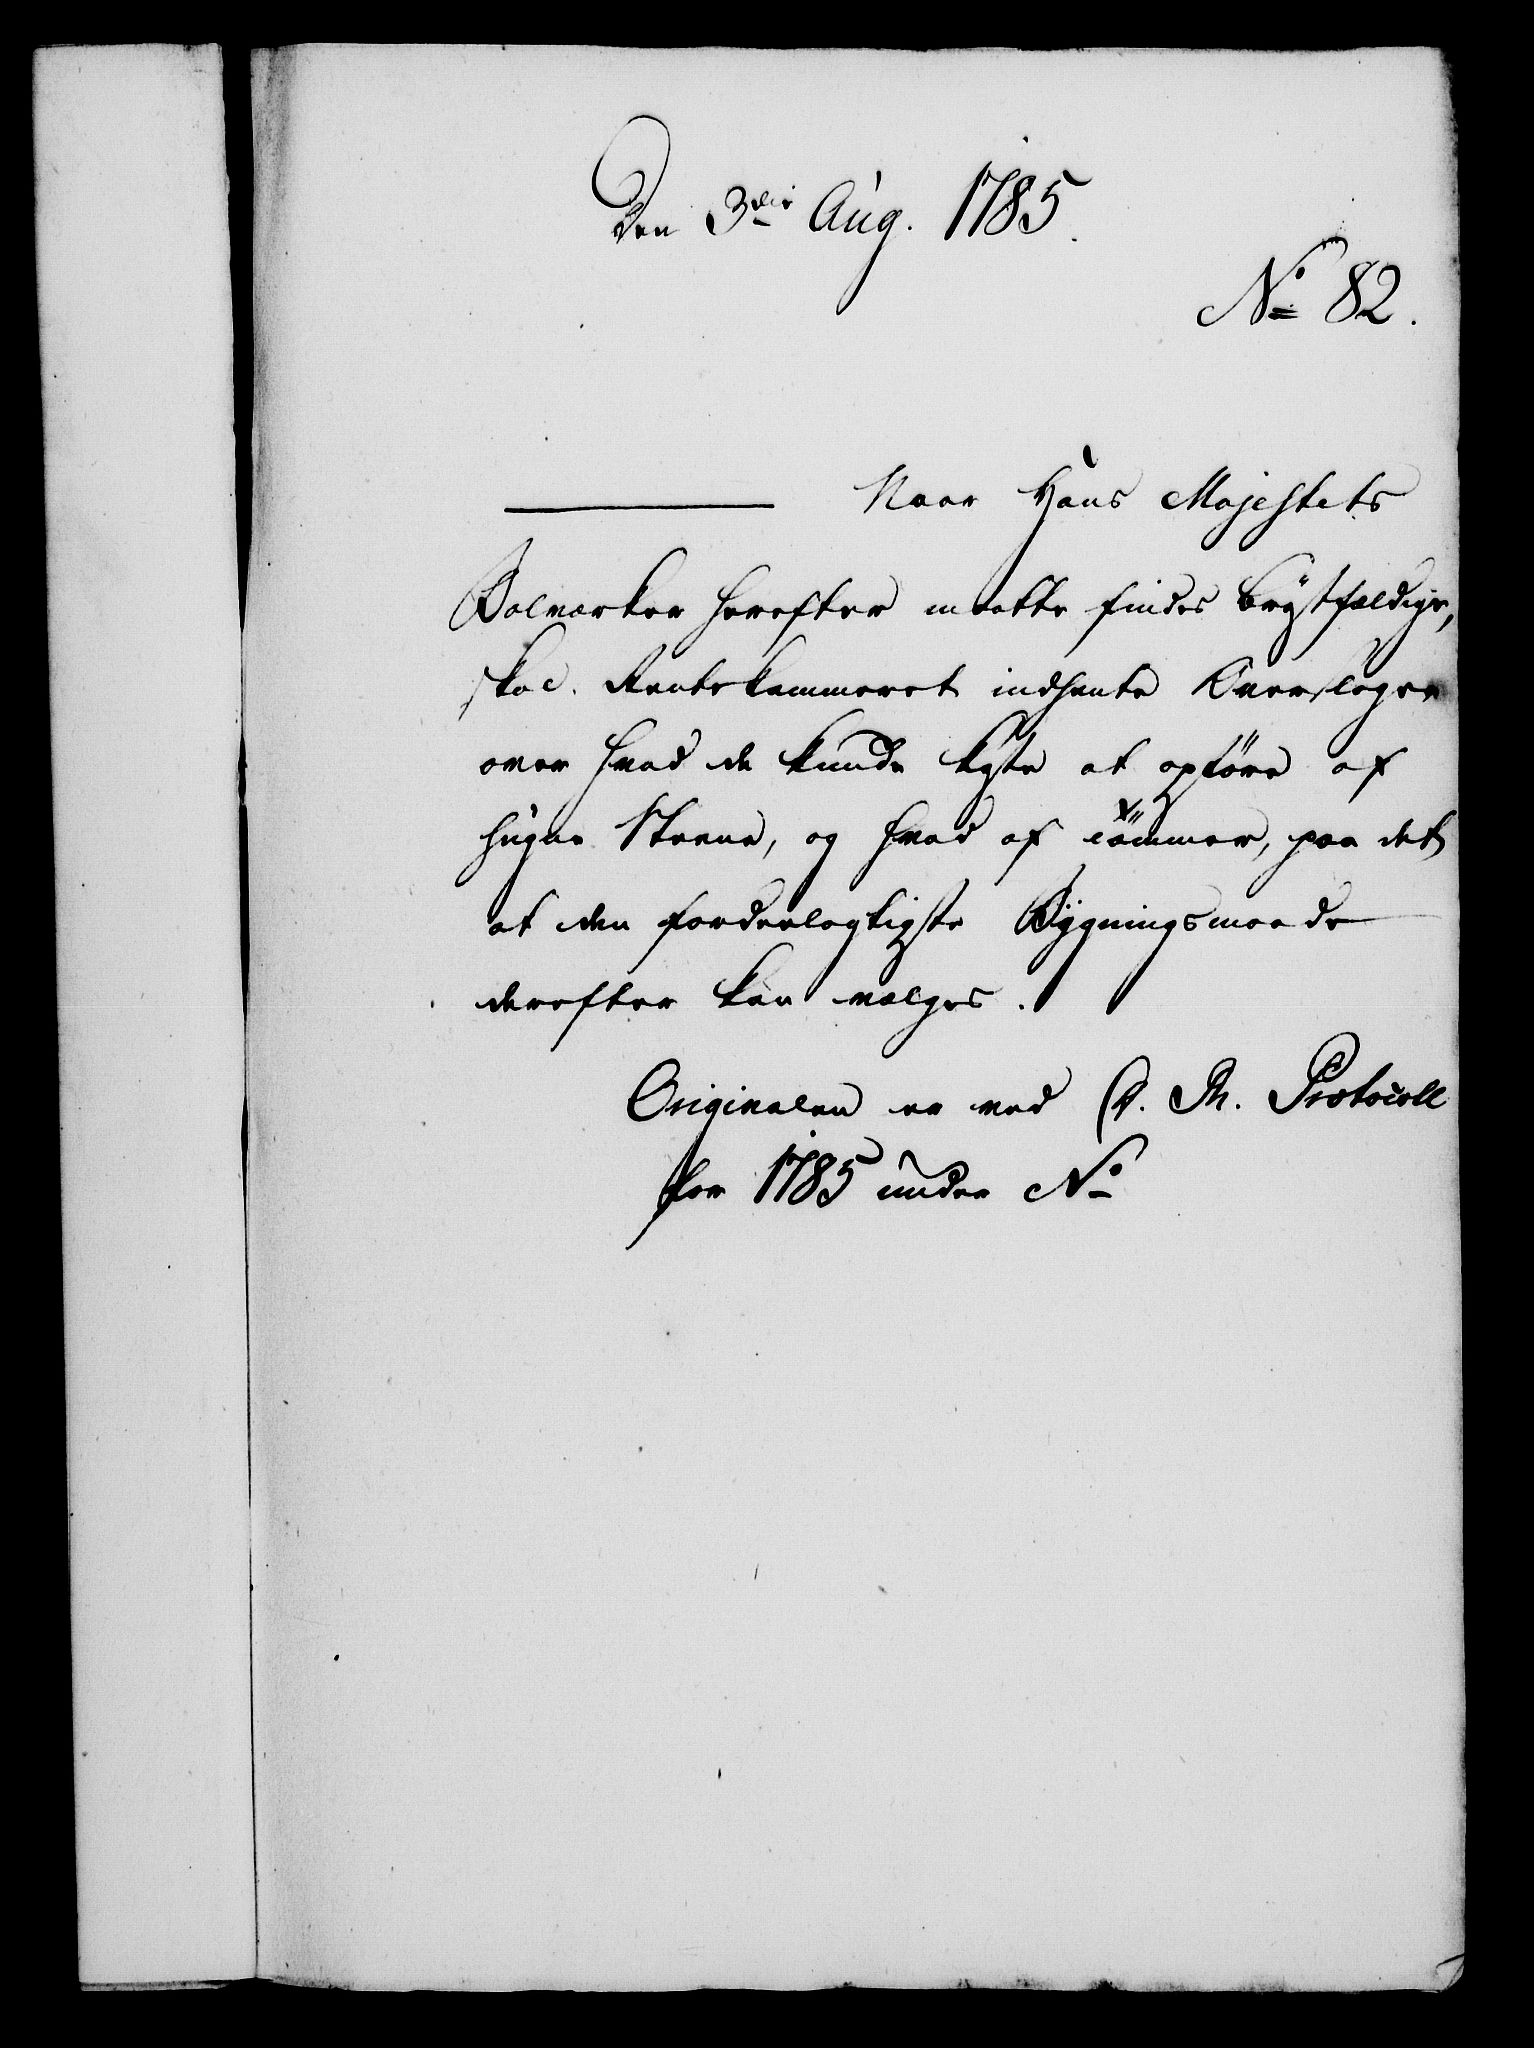 Den 3die Aug. 1785.
No 82.
Naar Hans Majestets
Bolværker herefter maatte findes brøstfældige,
skal Rentekammeret indhente Overslager
over hvad de kunde koste at opföre af
hugne Steene, og hvad af Tömmer, paa det
at den fordeelagtigste Bygningsmaade
derefter kan vælges.
Originalen er ved D. Protocoll
for 1785 under No